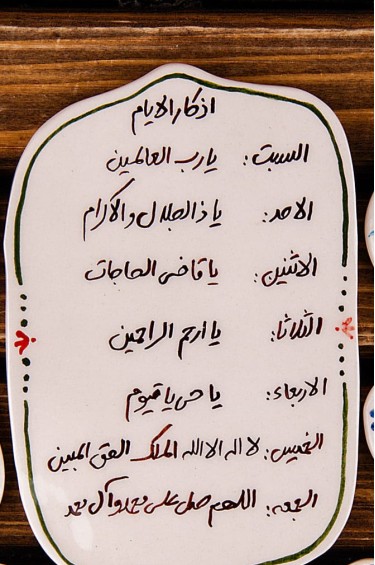 اذكار الايام
السبت: يا رب العالمين
الاحد: يا ذالجلال والاكرام
الاثنين: يا قاضي الحاجات
الثلاثا: يا ارحم الراحمين
الاربعاء: يا حي يا قيوم
الخميس: لا اله الا الله الملك الحق المبين
الجمعه: اللهم صل على محمد وآل محمد